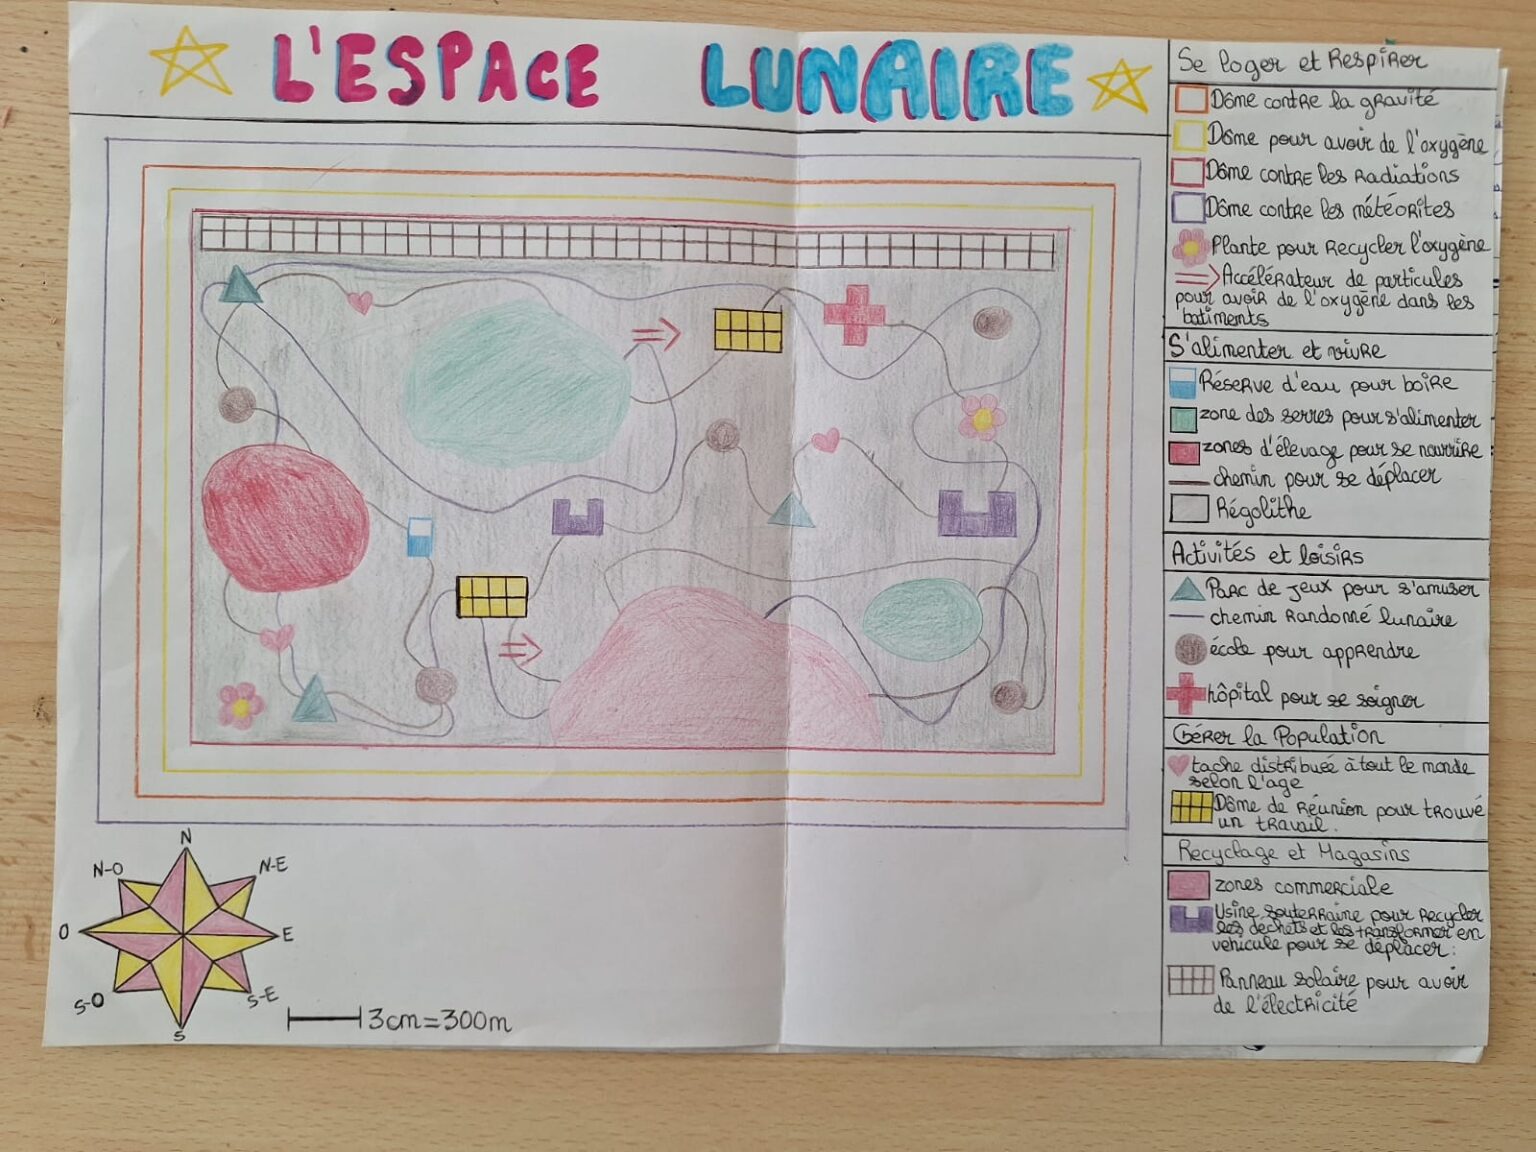 L'ESPACE LUNAIRE
Se loger et Respirer
Dôme contre la gravité
Dôme pour avoir de l'oxygène
Dôme contre les radiations
Dôme contre les météorites
Plante pour Recycler l'oxygène
Accélérateur de particules
pour avoir de l'oxygène dans les
batiments
S'alimenter et vivre
Réserve d'eau pour boire
zone des serres pour s'alimenter
zones d'élevage pour se nourrire
chemin pour se déplacer
Régolithe
Activités et loisirs
Parc de jeux pour s'amuser
chemin randonné lunaire
école pour apprendre
hôpital pour se soigner
Gérer la Population
tache distribuée à tout le monde
selon l'age
Dôme de Réunion pour trouvé
un travail.
Recyclage et Magasins
zones commerciale
Usine souterraine pour recycler
les déchets et les transformer en
véhicule pour se déplacer.
Panneau solaire pour avoir
de l'électricité
N
N-O
N-E
O
E
S-O
S-E
S
3cm=300m